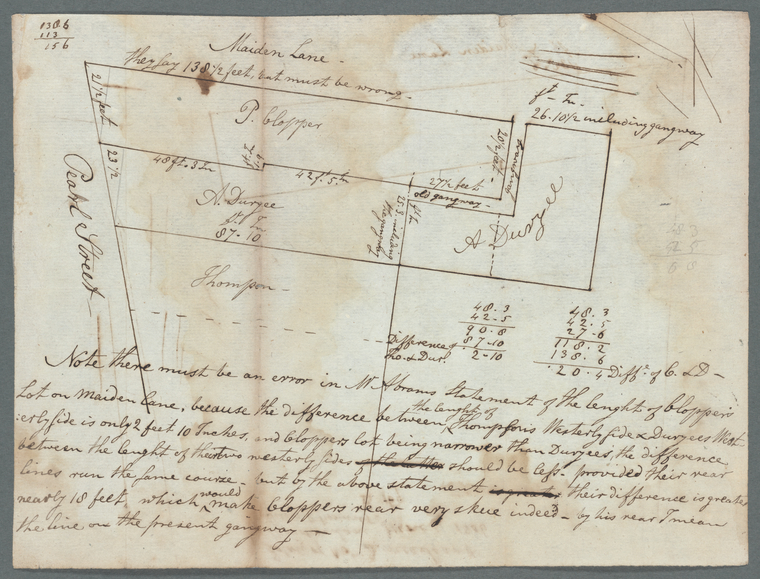 138.6
112
156
Maiden Lane -
they say 138 1/2 feet, but must be wrong -
21 1/2 feet
P. Clopper
ft. In.
26. 10 1/2 including gangway
20 1/2 feet
gangway
23 1/2
48 ft. 3 In
42 ft. 5 In
27 1/2 feet
old gangway -
A. Duryee
ft. In
87 - 10
25.3 including
the gangway
A Duryee
Pearl Street -
Thompson -
48. 3
42. 5
90. 8
Difference of 87-10
Tho. & Dur. 2-10
48. 3
42. 5
27 - 6
118. 2
138. 6
20. 4 Diffce of C. & D -
Note there must be an error in Mr. Abrams Statement of the lenght of Cloppers
Lot on Maiden Lane, because the difference between the lenght of Thompson's Westerly side & Duryees West
erly side is only 2 feet 10 Inches, and Cloppers lot being narrower than Duryees, the difference
between the lenght of their two westerly sides should be less provided their rear
lines run the same course - but by the above statement their difference is greater
nearly 18 feet, which would make Cloppers rear very skew indeed - by his rear I mean
the line on the present gangway -